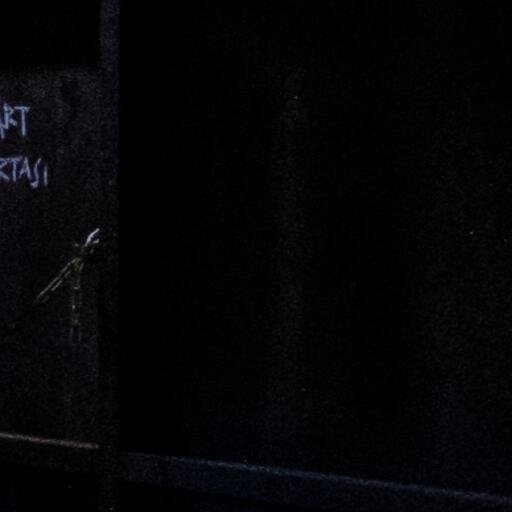 ART
RTASI